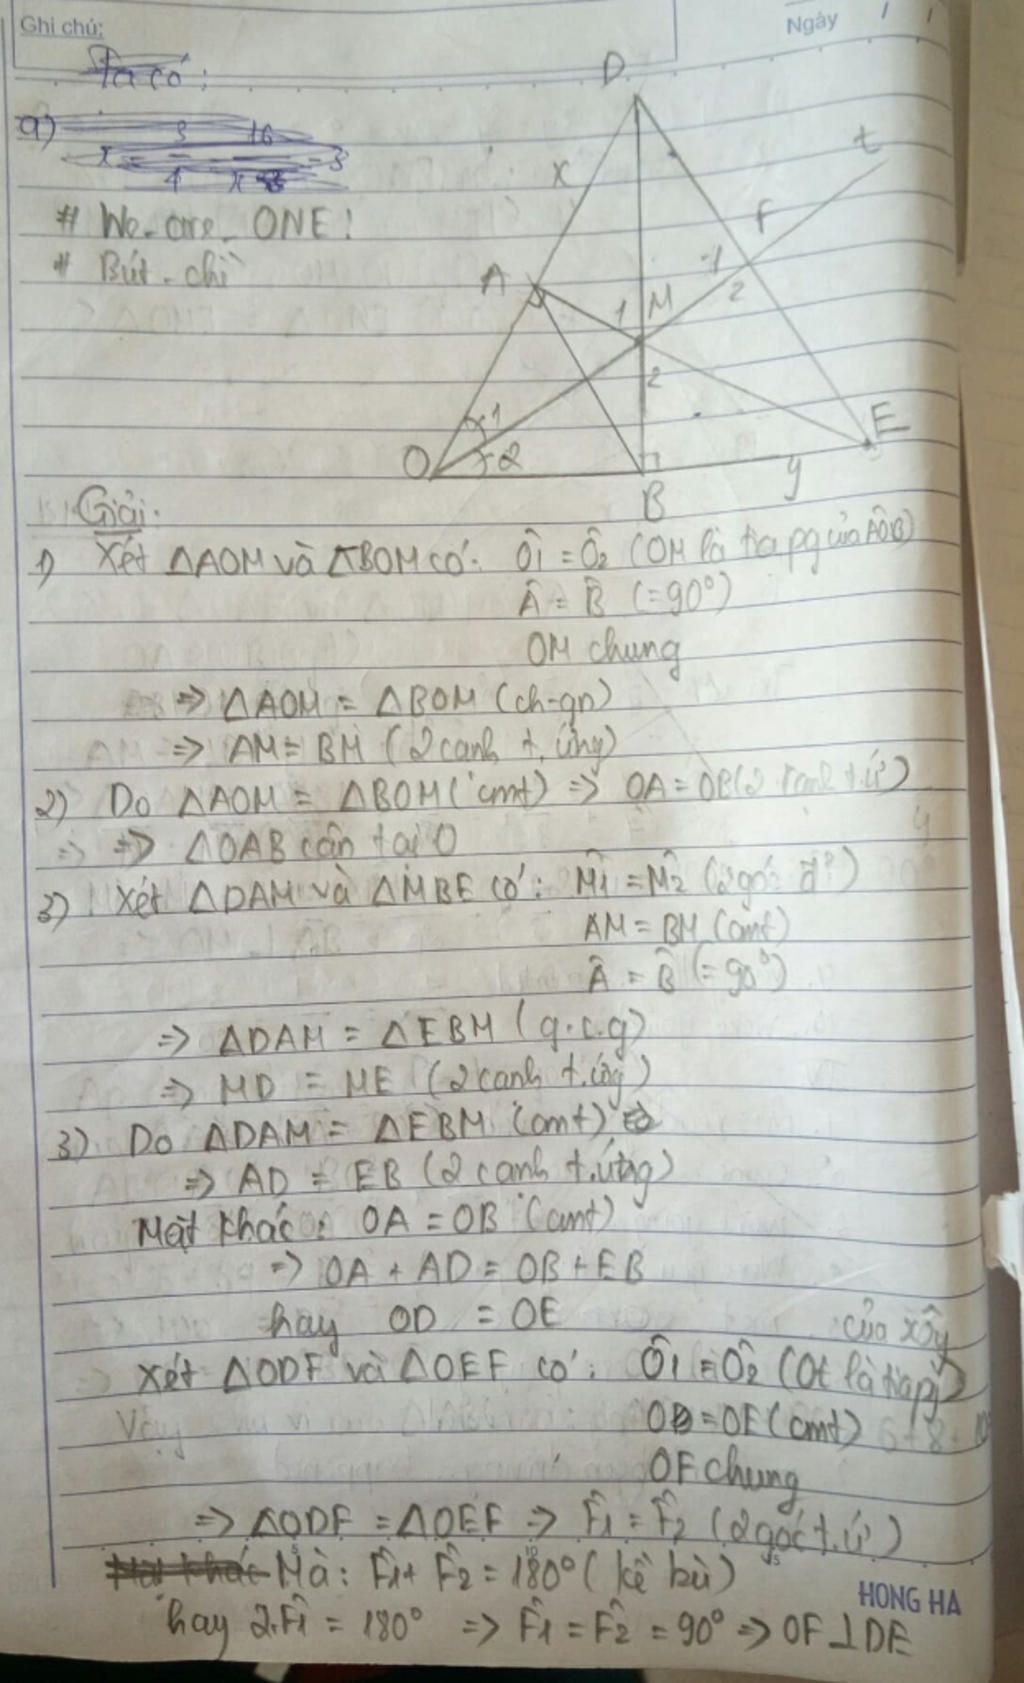 Ghi chú:
Ngày / /
Ta có:
a)
# We_are_ONE!
# Bút_chì
D
x
t
F
A
1
1
M
2
2
1
O
2
E
B
y
Giải:
1) Xét ΔAOM và ΔBOM có: Ô1 = Ô2 (OM là tia pg của AÔB)
Â = B̂ (=90°)
OM chung
=> ΔAOM = ΔBOM (ch-gn)
=> AM = BM (2 cạnh t.ứng)
2) Do ΔAOM = ΔBOM (cmt) => OA = OB (2 cạnh t.ứ)
=> => ΔOAB cân tại O
3) Xét ΔDAM và ΔMBE có: M̂1 = M̂2 (2 góc đ²)
AM = BM (cmt)
Â = B̂ (=90°)
=> ΔDAM = ΔEBM (g.c.g)
=> MD = ME (2 cạnh t.ứng)
3) Do ΔDAM = ΔEBM (cmt)
=> AD = EB (2 cạnh t.ứng)
Mặt khác: OA = OB (cmt)
=> OA + AD = OB + EB
hay OD = OE
của xÔy
Xét ΔODF và ΔOEF có: Ô1 = Ô2 (Ot là tia pg)
OD = OE (cmt)
OF chung
=> ΔODF = ΔOEF => F̂1 = F̂2 (2 góc t.ứ)
Mặt khác Mà: F̂1 + F̂2 = 180° (kề bù)
HONG HA
hay 2.F̂1 = 180° => F̂1 = F̂2 = 90° => OF ⊥ DE